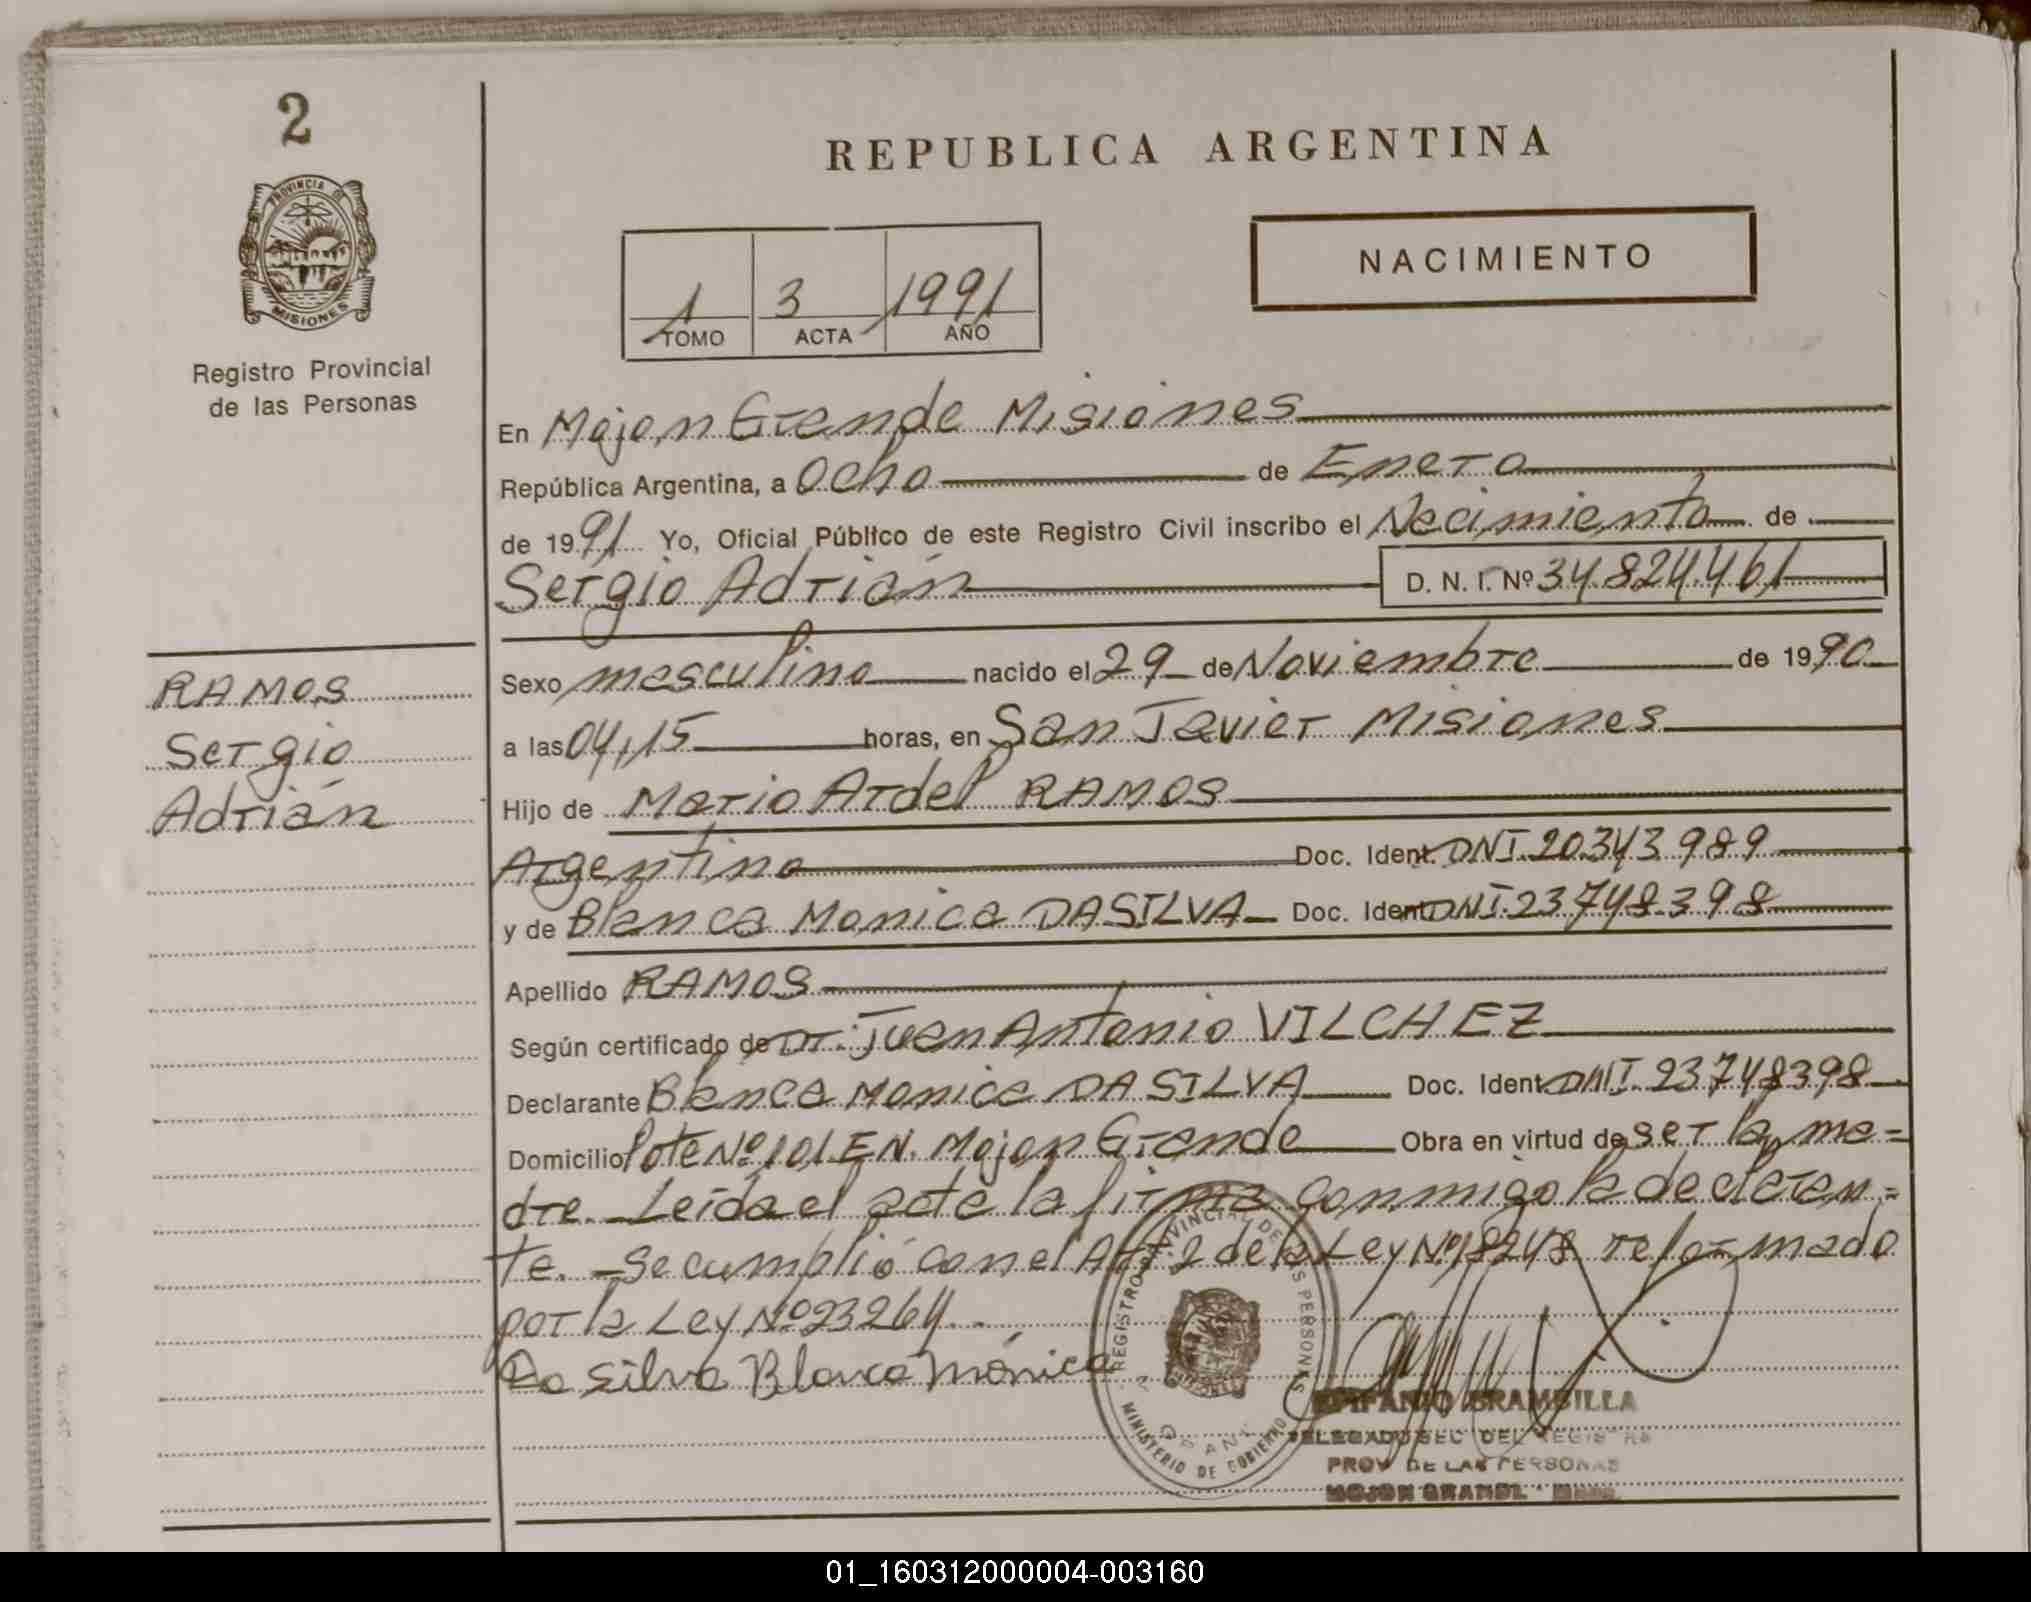 2
PROVINCIA DE
MISIONES
Registro Provincial
de las Personas
RAMOS
Sergio
Adrián
REPUBLICA ARGENTINA
1 3 1991
TOMO ACTA AÑO
NACIMIENTO
En Mojon Grande Misiones
República Argentina, a Ocho de Enero
de 1991 Yo, Oficial Público de este Registro Civil inscribo el Nacimiento de
Sergio Adrián D. N. I. Nº 34.824.461
Sexo masculino nacido el 29 de Noviembre de 1990
a las 04,15 horas, en San Javier Misiones
Hijo de Mario Ardel RAMOS
Argentino Doc. Ident. DNI.20343989
y de Blanca Monica DASILVA Doc. Ident. DNI.23748398
Apellido RAMOS
Según certificado de Dr. Juan Antonio VILCHEZ
Declarante Blanca Monica DA SILVA Doc. Ident. DNI.23748398
Domicilio lote Nº 101.EN. Mojon Grande Obra en virtud de ser la ma=
dre. Leida el acta la firma conmigo la declaran=
te. Se cumplió con el Art 2 de la Ley Nº18248 reformado
por la Ley Nº23264.
Da Silva Blanca Mónica
REGISTRO PROVINCIAL DE LAS PERSONAS
MINISTERIO DE GOBIERNO
EPIFANIO BRAMBILLA
PROV DE LAS PERSONAS
MOJON GRANDE
01_160312000004-003160